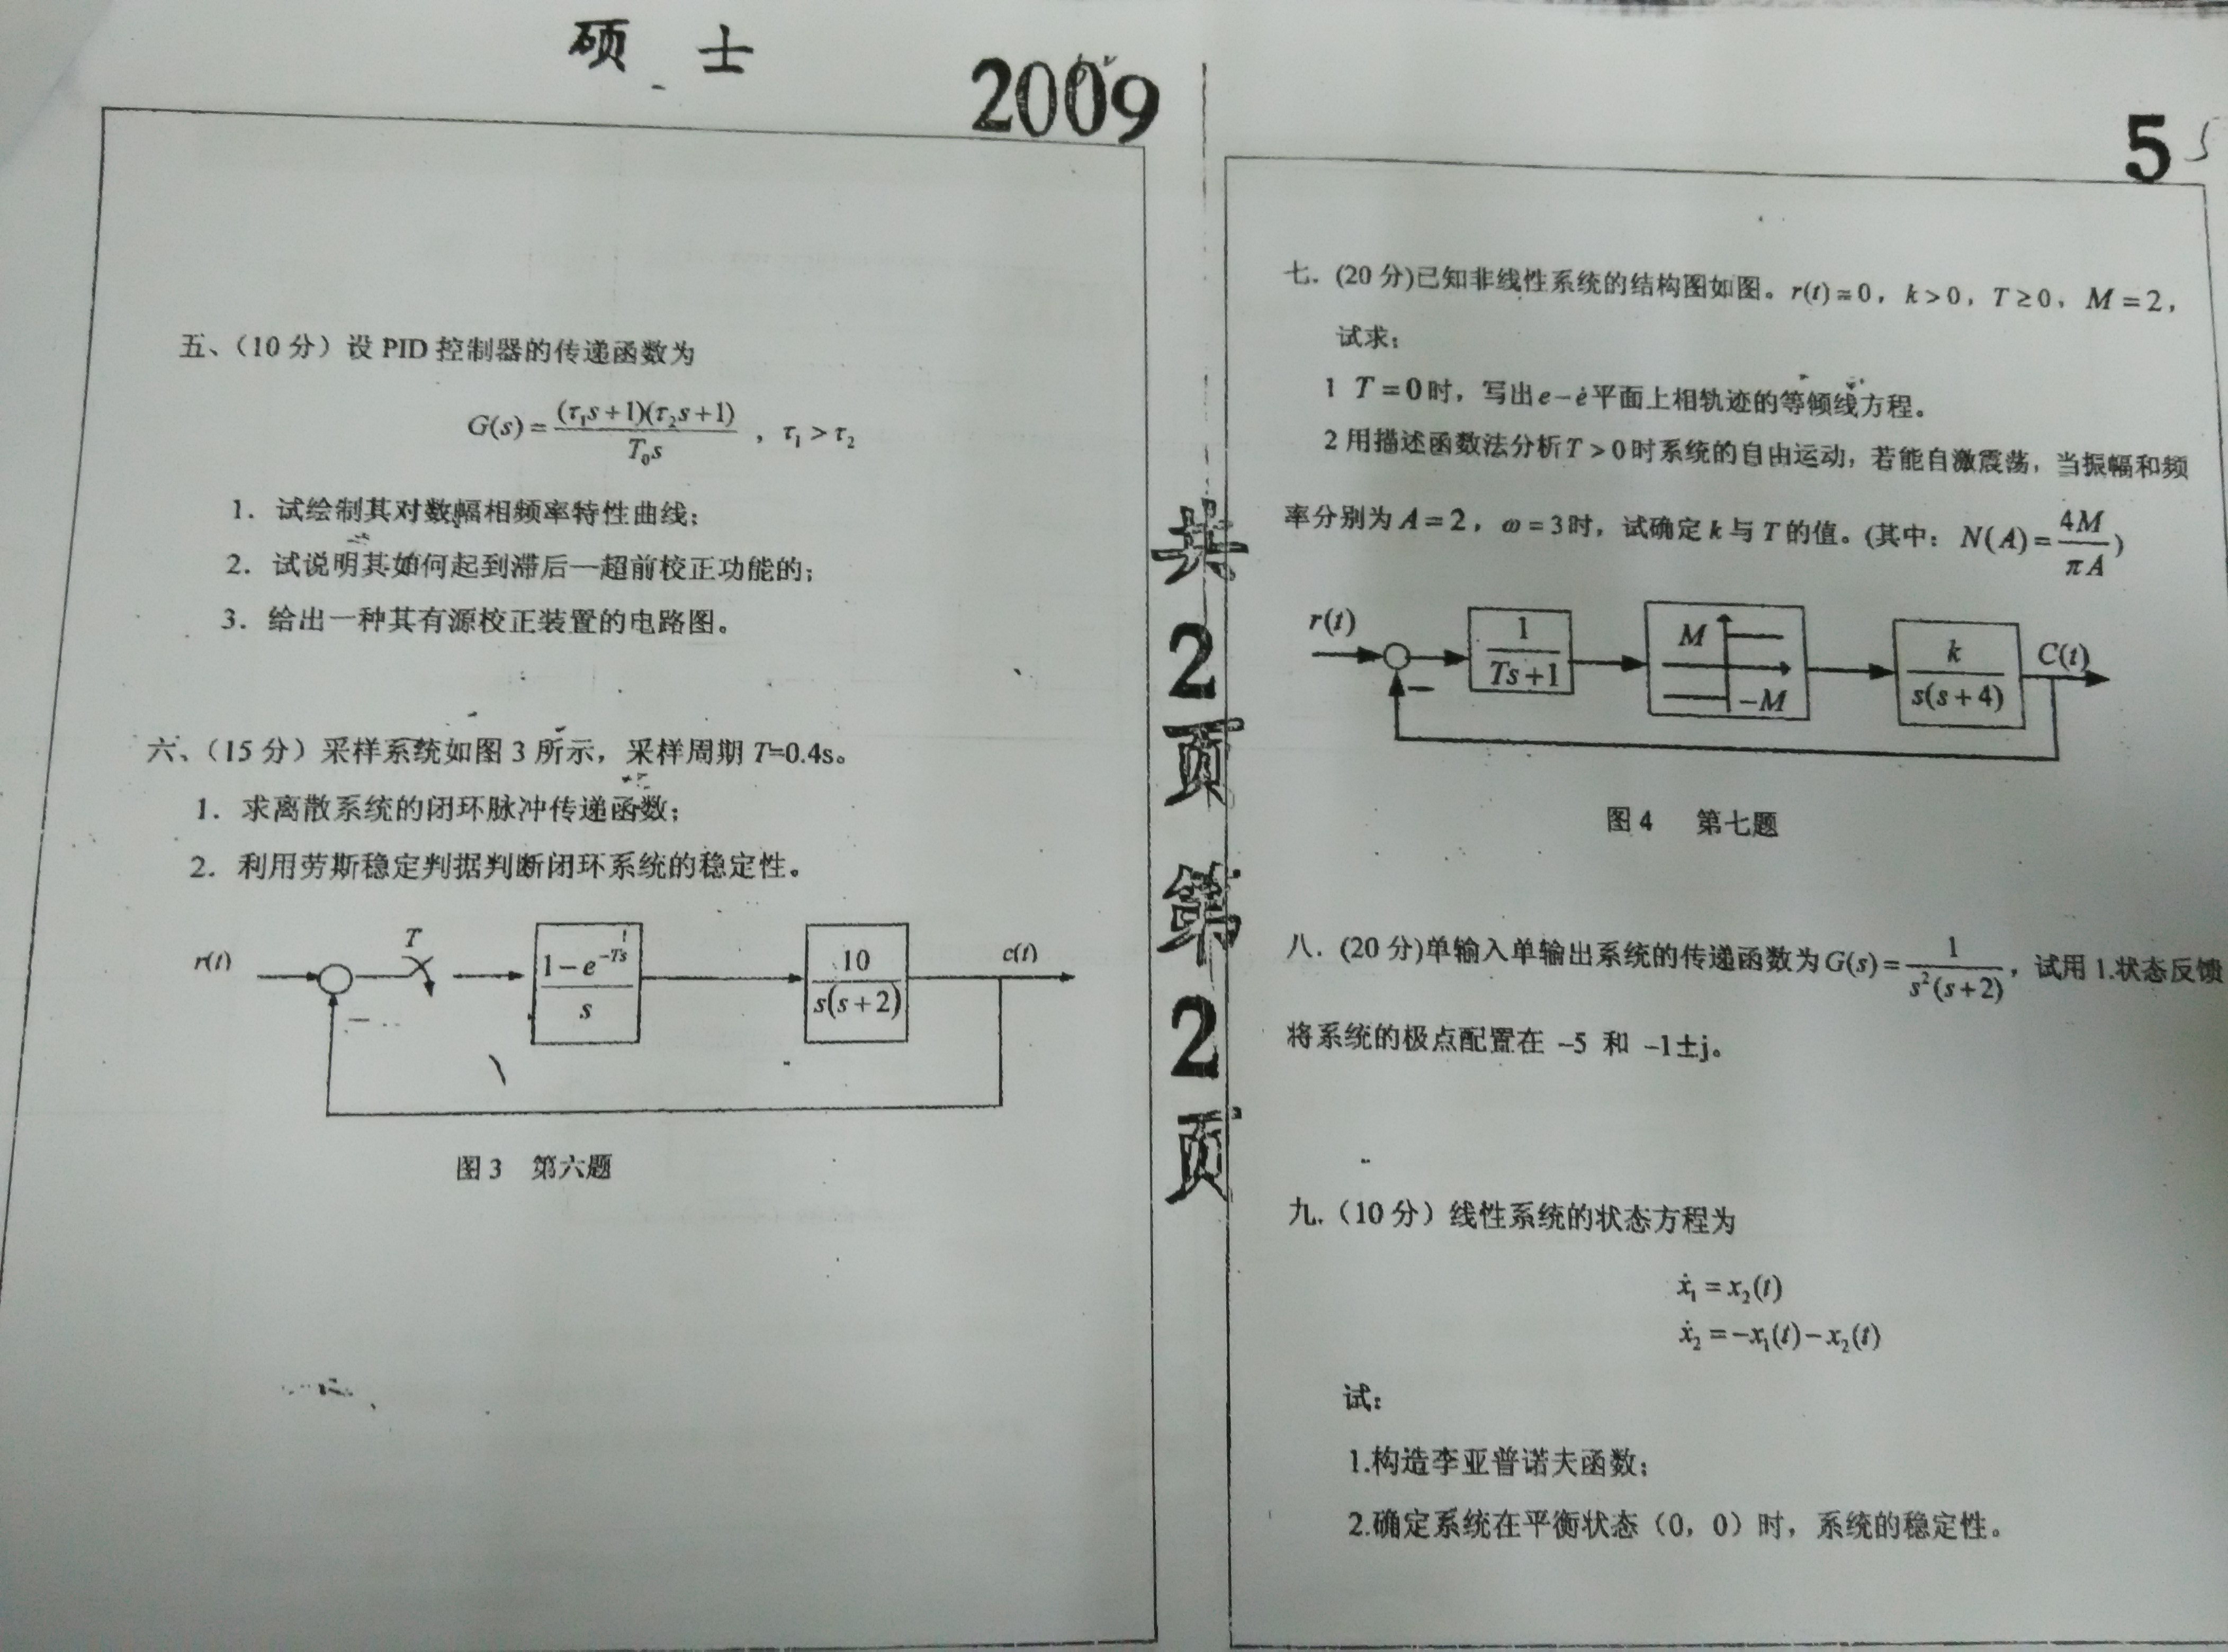 硕 士
2009
五、（10 分）设 PID 控制器的传递函数为
G(s) = (τ₁s+1)(τ₂s+1) / T₀s ， τ₁ > τ₂
1．试绘制其对数幅相频率特性曲线；
2．试说明其如何起到滞后—超前校正功能的；
3．给出一种其有源校正装置的电路图。
六、（15 分）采样系统如图 3 所示，采样周期 T=0.4s。
1．求离散系统的闭环脉冲传递函数；
2．利用劳斯稳定判据判断闭环系统的稳定性。
r(t)
T
1−e^{−Ts} / s
10 / s(s+2)
c(t)
−
图 3 第六题
共
2
页
第
2
页
5
七．(20 分)已知非线性系统的结构图如图。r(t)=0，k>0，T≥0，M=2，
试求：
1 T=0时，写出e−ė平面上相轨迹的等倾线方程。
2 用描述函数法分析T>0时系统的自由运动，若能自激震荡，当振幅和频
率分别为A=2，ω=3时，试确定k与T的值。(其中：N(A)=4M/πA)
r(t)
−
1 / Ts+1
M
−M
k / s(s+4)
C(t)
图 4 第七题
八．(20 分)单输入单输出系统的传递函数为G(s)=1 / s²(s+2)，试用 1.状态反馈
将系统的极点配置在 −5 和 −1±j。
九.（10 分）线性系统的状态方程为
ẋ₁ = x₂(t)
ẋ₂ = −x₁(t)−x₂(t)
试：
1.构造李亚普诺夫函数；
2.确定系统在平衡状态（0，0）时，系统的稳定性。